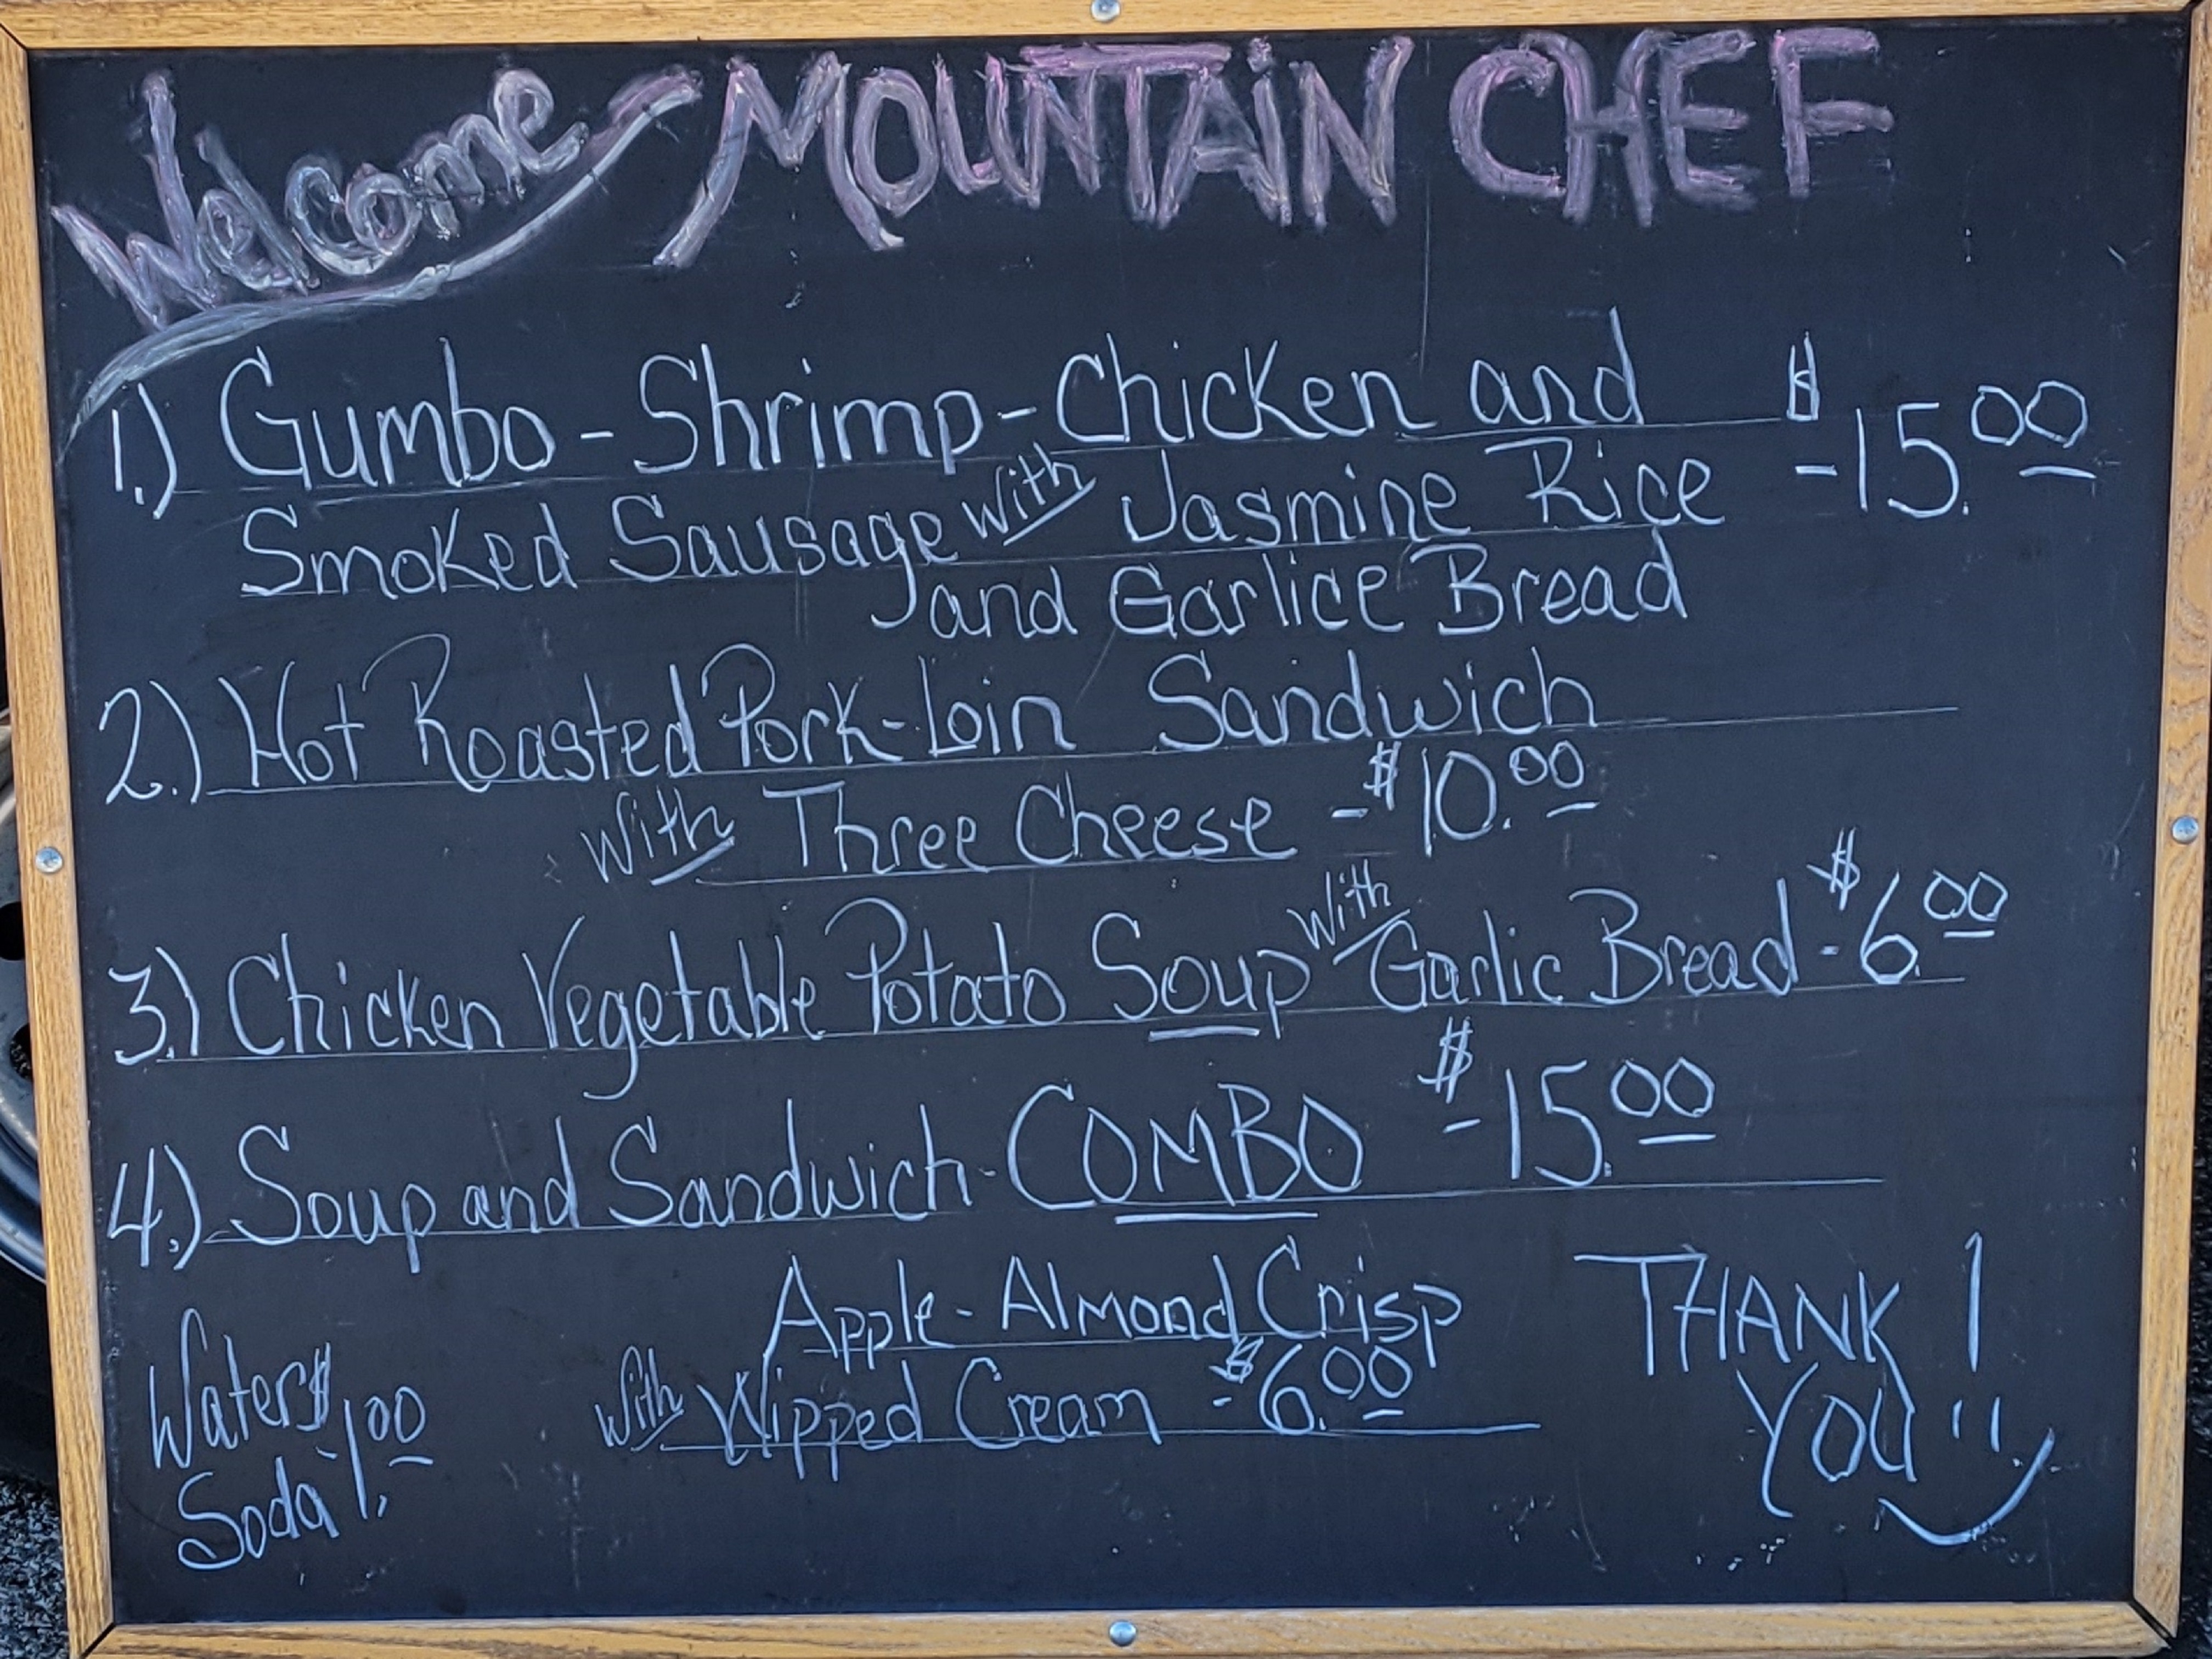 Welcome - MOUNTAIN CHEF
1.) Gumbo - Shrimp - Chicken and $
Smoked Sausage with Jasmine Rice - 15.00
and Garlice Bread
2.) Hot Roasted Pork-Loin Sandwich
with Three Cheese - $10.00
3.) Chicken Vegetable Potato Soup with Garlic Bread - $6.00
4.) Soup and Sandwich - COMBO - $15.00
Apple - Almond Crisp
with Wipped Cream - $6.00
Water $1.00
Soda 1.
THANK !
YOU